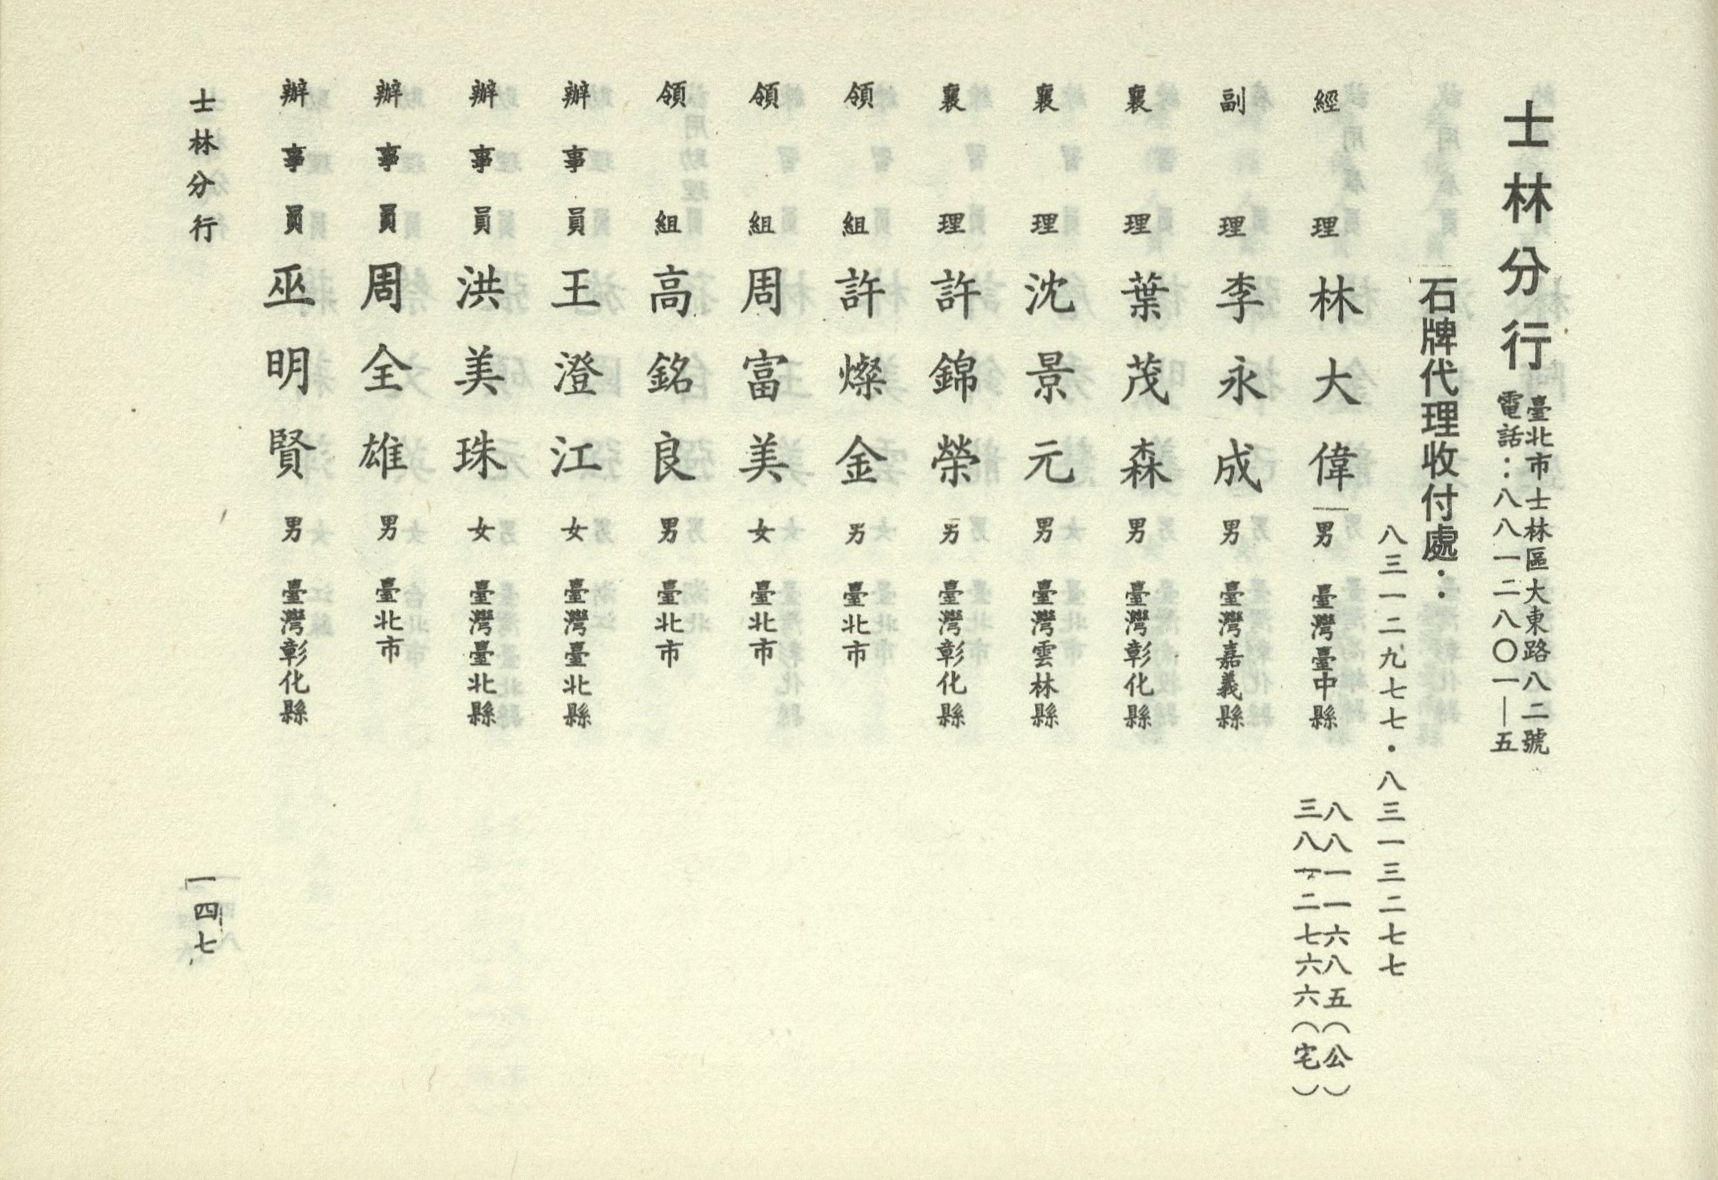 士林分行
臺北市士林區大東路八二號
電話：八八一二八〇一—五
石牌代理收付處：
八三一二九七七・八三一三二七七
經理 林大偉 男 臺灣臺中縣
八八一一六八五（公）
三八一二七六六（宅）
副理 李永成 男 臺灣嘉義縣
襄理 葉茂森 男 臺灣彰化縣
襄理 沈景元 男 臺灣雲林縣
襄理 許錦榮 男 臺灣彰化縣
領組 許燦金 男 臺北市
領組 周富美 女 臺北市
領組 高銘良 男 臺北市
辦事員 王澄江 女 臺灣臺北縣
辦事員 洪美珠 女 臺灣臺北縣
辦事員 周全雄 男 臺北市
辦事員 巫明賢 男 臺灣彰化縣
士林分行
一四七